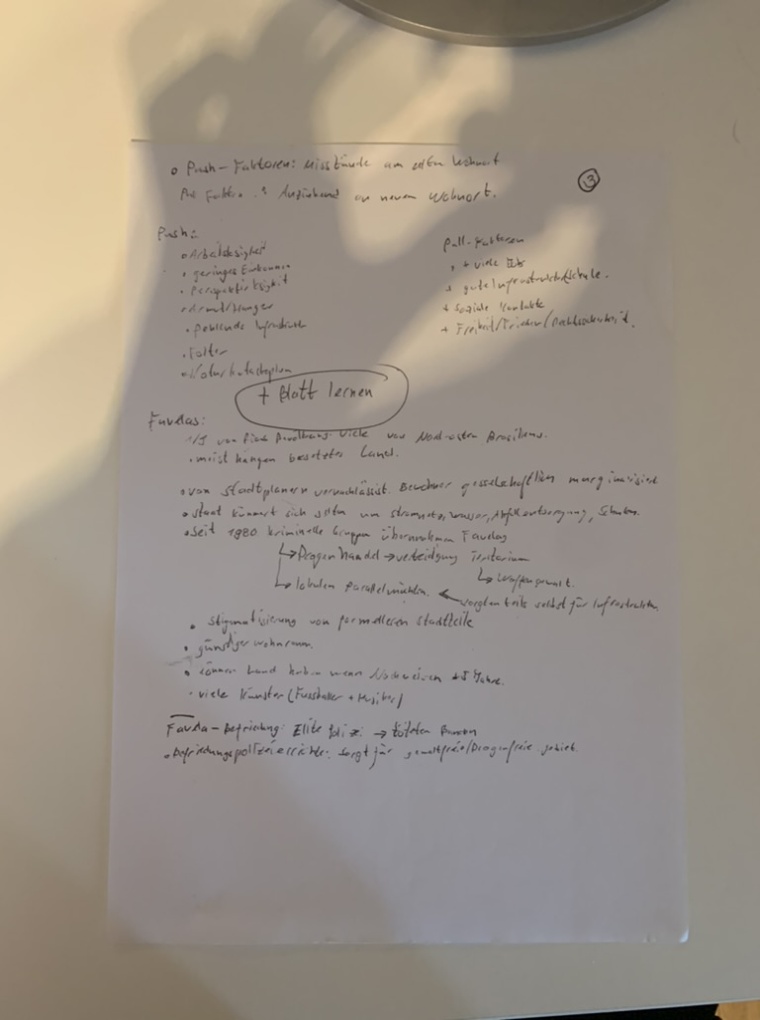 Push-Faktoren: Missstände am alten Wohnort
13
Pul Faktoren: Anziehend an neuem Wohnort.
Push:
Arbeitslosigkeit
geringes Einkommen
Perspektivlosigkeit
Armut/Hunger
Fehlende Infrastruktur
Folter
Naturkatastrophen
Pull-Faktoren
+ viele
+ gute Infrastruktur/Schule.
+ Soziale Kontakte
+ Freiheit/Frieden/Rechtssicherheit.
+ Blatt lernen
Favelas:
1/5 von viele von Nord-osten Brasiliens.
meist hängen besetztes Land.
von Stadtplanern vernachlässist. Bewohner gesselschaftlich marginalisiert
Staat kümmert sich selten um stromnetz, wasser, Abfallentsorgung, Schulen.
Seit 1980 kriminelle Gruppen übernahmen Favelas
→ Drogenhandel → verteidigung Territorium
→ Waffengewalt.
→ lokalen Parallelmächten. ← sorgten teils selbst für Infrastruktur.
Stigmatisierung von formelleren Stadtteile
günstiger wohnraum.
können Land haben wenn +5 Jahre.
viele Künster (Fussballer + Musiker)
Favela-Befriedung: Elite Polizei → töteten
Befriedungspolizei errichtet: sorgt für gewaltfreie/Drogenfreie gebiet.